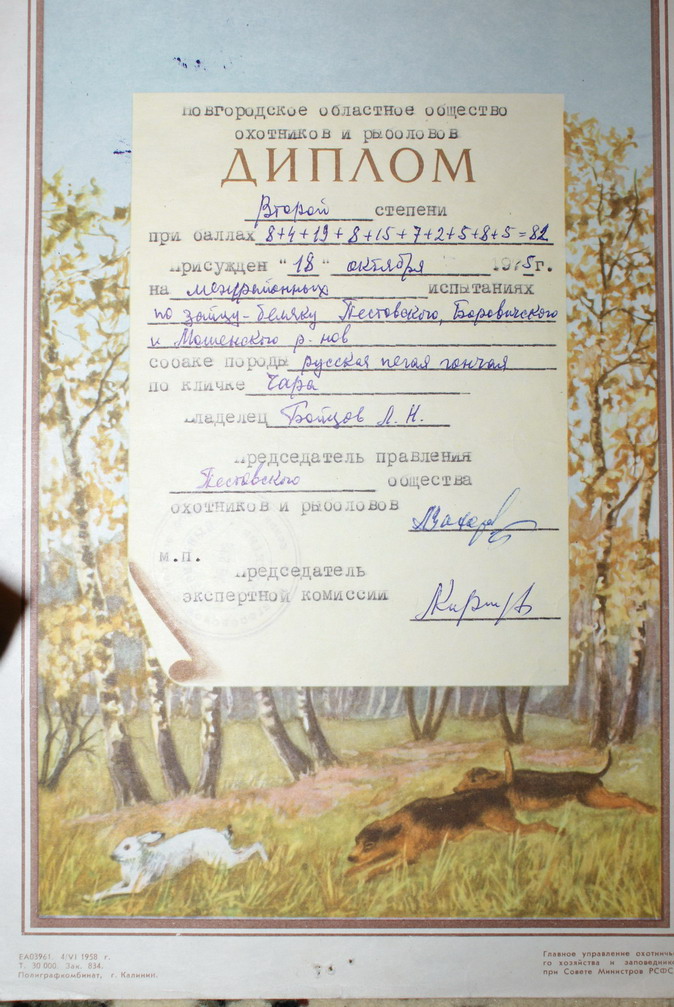 Новгородское областное общество
охотников и рыболовов
ДИПЛОМ
Второй степени
при баллах 8+4+19+8+15+7+2+5+8+5=82
присужден "18" октября 1975г.
на межрайонных испытаниях
по зайцу-беляку Пестовского, Боровичского
и Мошенского р-нов
собаке породы русская пегая гончая
по кличке Чара
Владелец Бойцов Л. Н.
Председатель правления
Пестовского общества
охотников и рыболовов
м.п.
Председатель
экспертной комиссии
ЕА03961. 4/VI 1958 г.
Т. 30 000. Зак. 834.
Полиграфкомбинат, г. Калинин.
Главное управление охотничь-
го хозяйства и заповеднико
при Совете Министров РСФС